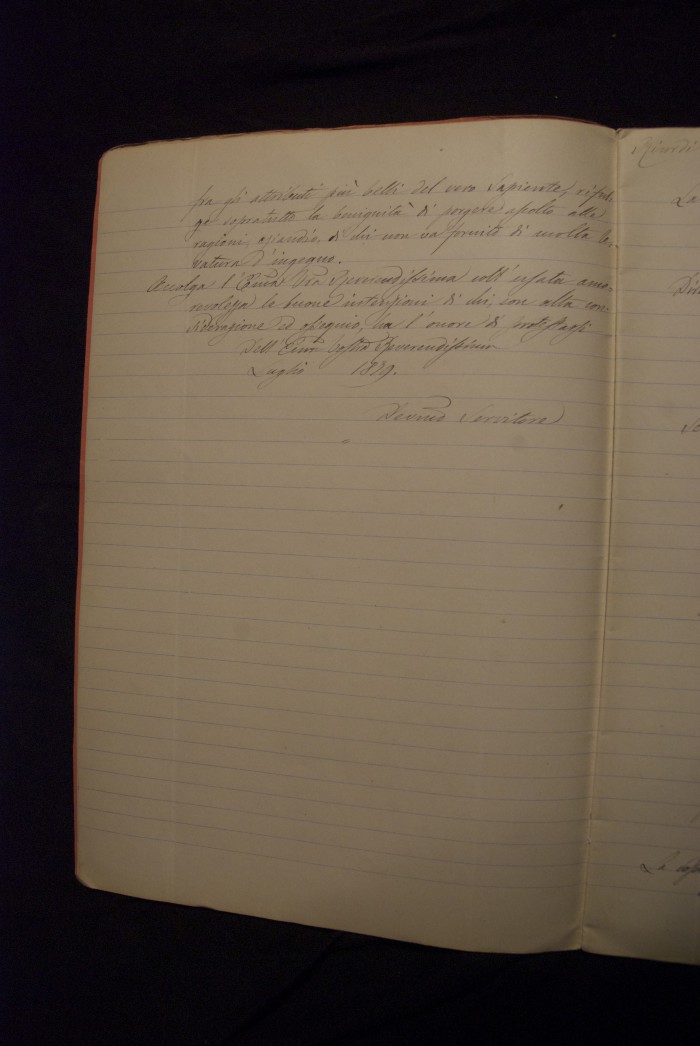 fra gli attributi più belli del vero Sapiente, riful-
ge sopratutto la benignità di porgere ascolto alle
ragioni, eziandio, di chi non va fornito di molta le-
vatura d'ingegno.
Accolga l'Emza Vra Reverendissima coll'usata amo-
revolezza le buone intenzioni di chi, con alta con-
siderazione ed ossequio, ha l'onore di protestarsi
Dell'Emza Vostra Reverendissima
Luglio 1879.
Devmo Servitore
Ricordi
La
Di
La